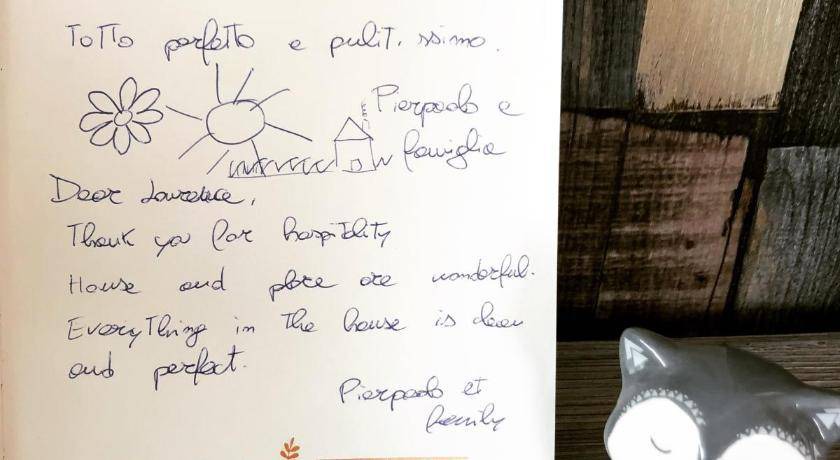 Totto perfetto e pulitissimo.
Pierpaolo e
famiglia
Dear Laurence,
Thank you for hospitality
House and place are wonderful.
Everything in the house is clean
and perfect.
Pierpaolo et
family